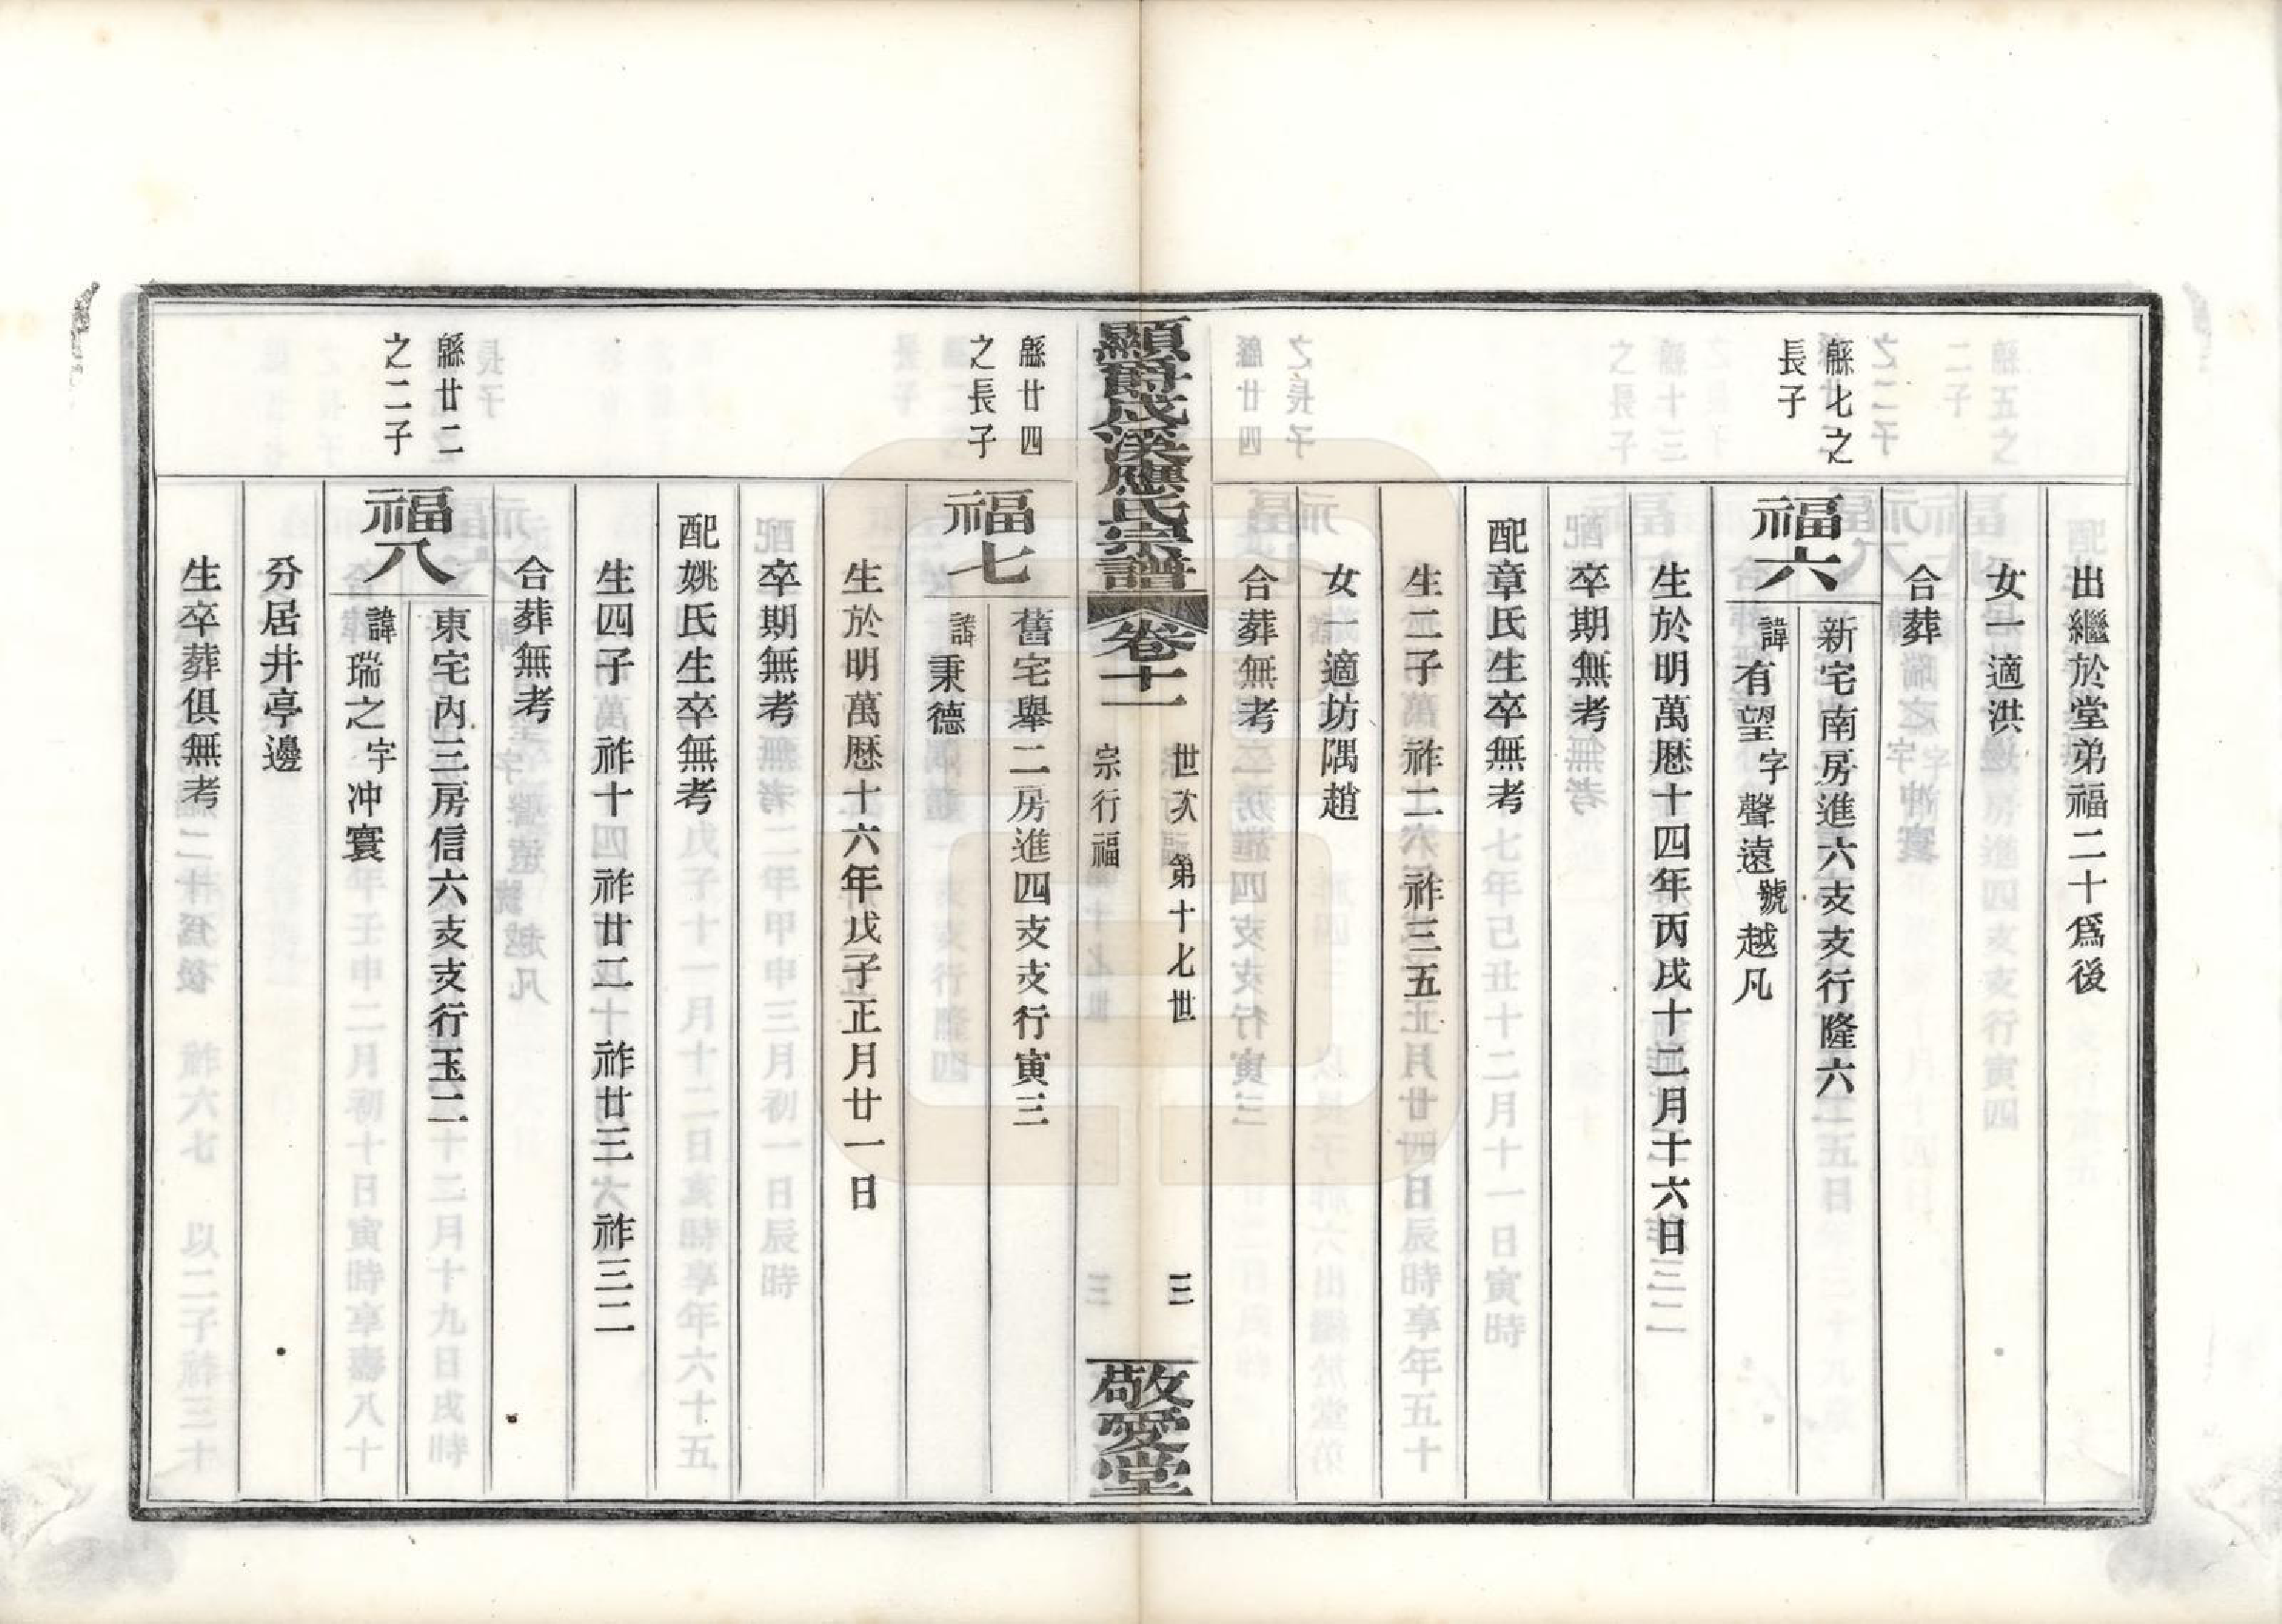 出繼於堂弟福二十爲後
女一適洪
合葬
緜七之
長子
福六
新宅南房進六支支行隆六
諱有望 字聲遠 號越凡
生於明萬歷十四年丙戌十二月十六日
卒期無考
配章氏生卒無考
生二子 祚二六 祚三五
女一適坊隅趙
合葬無考
顯爵成溪應氏宗譜 卷十一
世次 第十七世 三
宗行福
敬愛堂
緜廿四
之長子
福七
舊宅舉二房進四支支行寅三
諱秉德
生於明萬歷十六年戊子正月廿一日
卒期無考
配姚氏生卒無考
生四子 祚十四 祚廿二 祚廿三 祚三二
合葬無考
緜廿二
之二子
福八
東宅內三房信六支支行玉二
諱瑞之 字冲寰
分居井亭邊
生卒葬俱無考